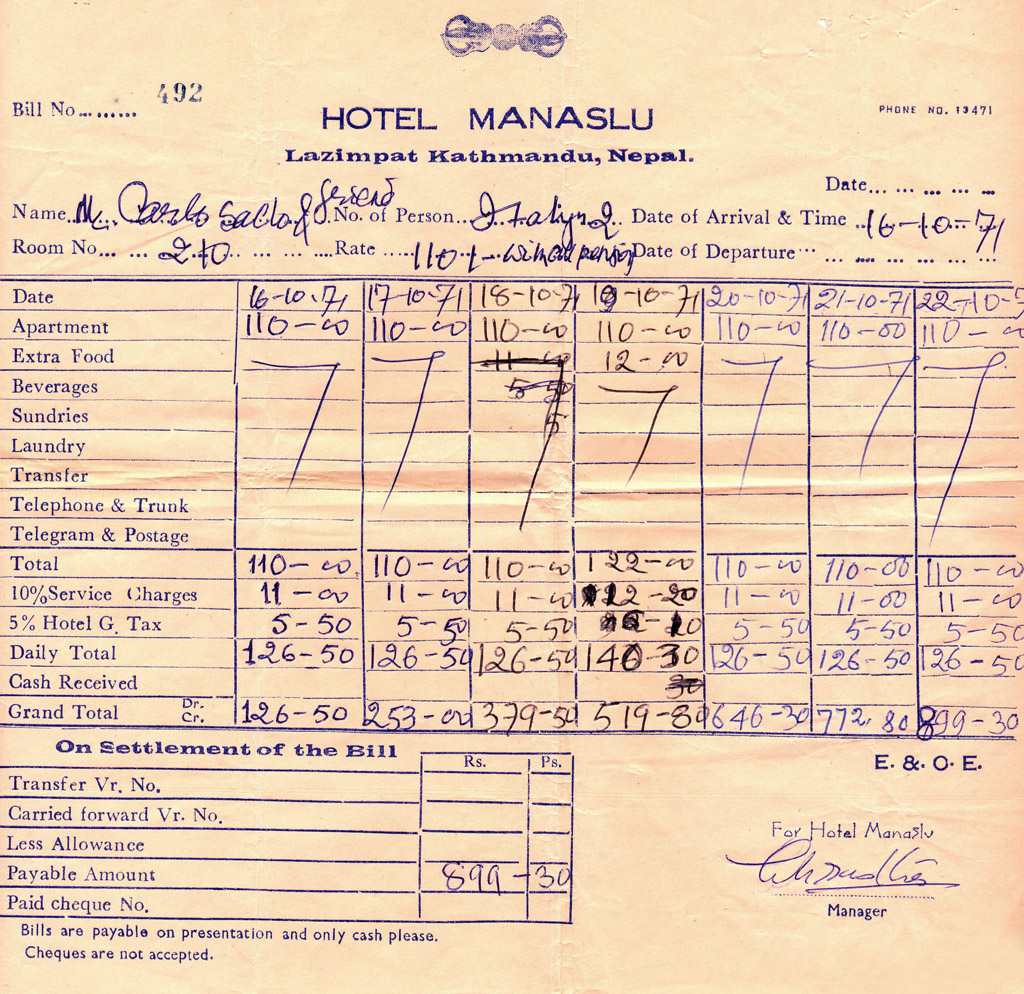 Bill No......... 492
HOTEL MANASLU
PHONE NO. 13471
Lazimpat Kathmandu, Nepal.
Date... ... ... ... ...
Name... M. Carlo & friend No. of Person... 2 Date of Arrival & Time 16-10-71
Room No... 210 Rate 110/- with Date of Departure...
Date 16-10-71 17-10-71 18-10-71 19-10-71 20-10-71 21-10-71 22-10-
Apartment 110-00 110-00 110-00 110-00 110-00 110-00 110-00
Extra Food 11-00 12-00
Beverages 5-50
Sundries 5
Laundry
Transfer
Telephone & Trunk
Telegram & Postage
Total 110-00 110-00 110-00 122-00 110-00 110-00 110-00
10%Service Charges 11-00 11-00 11-00 12-20 11-00 11-00 11-00
5% Hotel G. Tax 5-50 5-50 5-50 6-10 5-50 5-50 5-50
Daily Total 126-50 126-50 126-50 140-30 126-50 126-50 126-50
Cash Received 30
Grand Total Dr. Cr. 126-50 253-00 379-50 519-80 646-30 772.80 899-30
On Settlement of the Bill Rs. Ps.
E. & O. E.
Transfer Vr. No.
Carried forward Vr. No.
Less Allowance
Payable Amount 899-30
Paid cheque No.
For Hotel Manaslu
Manager
Bills are payable on presentation and only cash please.
Cheques are not accepted.